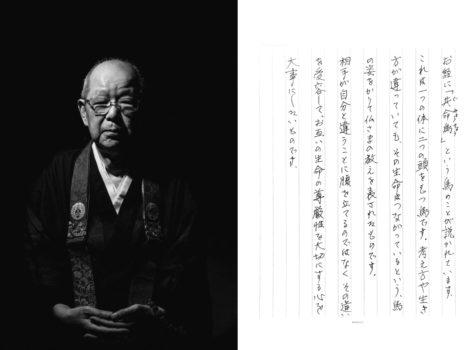 お経に「共命鳥」という鳥のことが説かれています。
これは一つの体に二つの頭をもつ鳥です。考え方や生き
方が違っていても、その生命はつながっているという、鳥
の姿をかりて仏さまの教えを表されたものです。
相手が自分と違うことに腹を立てるのではなく、その違い
を受容して、お互いの生命の尊厳性を大切にする心を
大事にしたいものです。